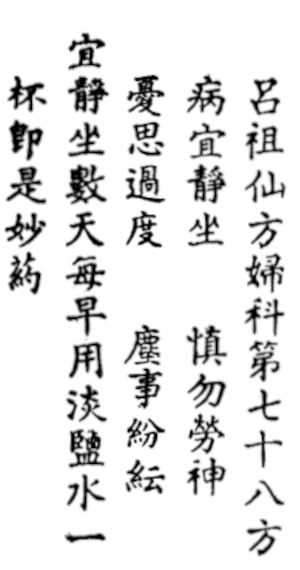 呂祖仙方婦科第七十八方
病宜靜坐　慎勿勞神
憂思過度　塵事紛紜
宜靜坐數天每早用淡鹽水一
杯即是妙葯